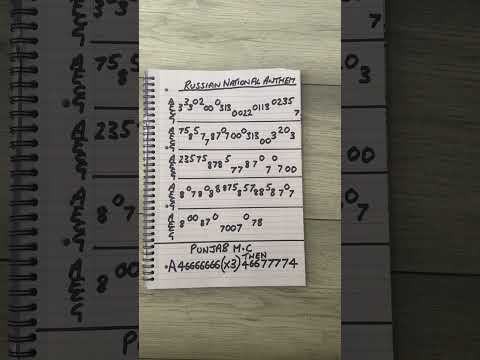 RUSSIAN NATIONAL ANTHEM
AEEG 3330200 0 5130022 0113 0235 7
AEEG 7585 77870700 0 51300 3203
AEEG 235758785 7787 0 7 0 700
AEEG 8070888758578858707
AEEG 80087 0 7007 0 78
PUNJAB M.C
THEN
A46666666(x3)46677774